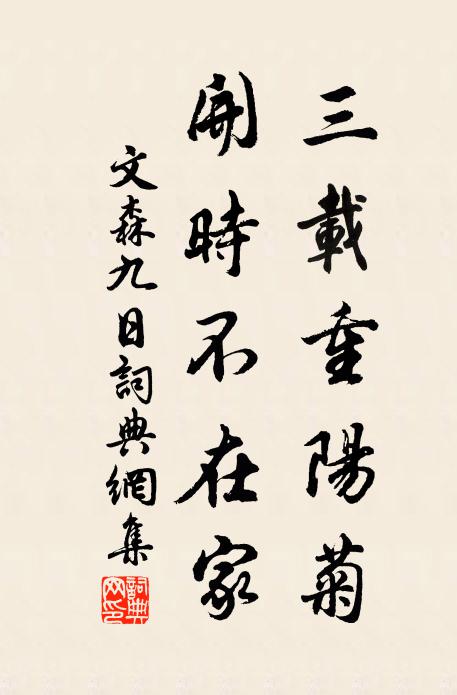 三載重陽菊
開時不在家
文森九日詞典網集
詞典網印